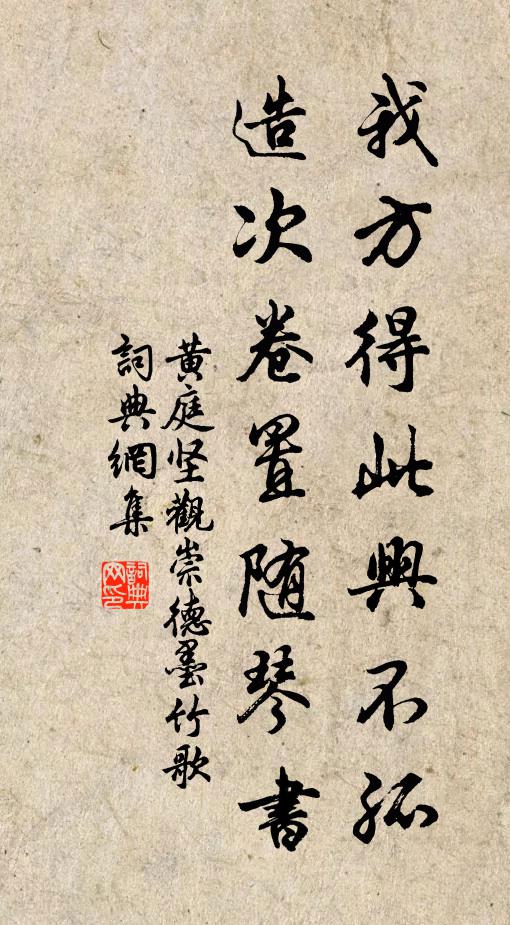 我方得此興不孤
造次卷置随琴書
黄庭坚觀崇德墨竹歌
詞典網集
詞典
网印